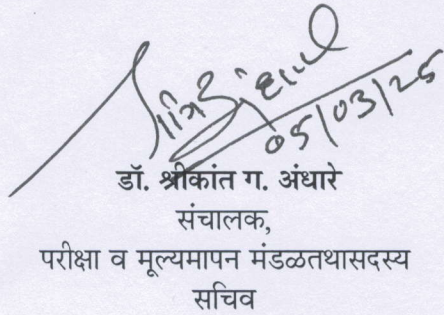 05/03/25
डॉ. श्रीकांत ग. अंधारे
संचालक,
परीक्षा व मूल्यमापन मंडळतथासदस्य
सचिव